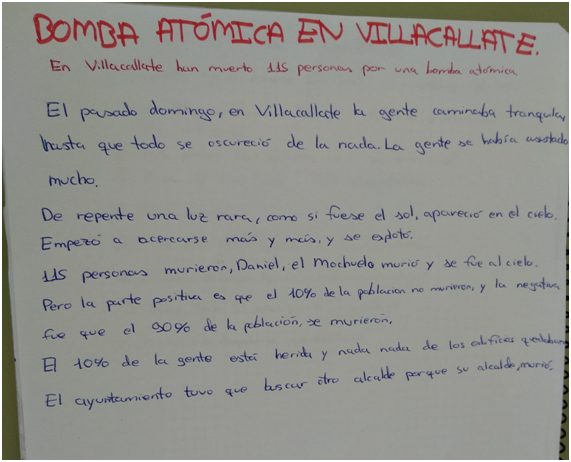 BOMBA ATÓMICA EN VILLACALLATE.
En Villacallate han muerto 115 personas por una bomba atómica
El pasado domingo, en Villacallate la gente caminaba tranquila,
hasta que todo se oscureció de la nada. La gente se había asustado
mucho.
De repente una luz rara, como si fuese el sol, apareció en el cielo.
Empezó a acercarse más y más, y se explotó.
115 personas murieron, Daniel, el Mochuelo murió y se fue al cielo.
Pero la parte positiva es que el 10% de la poblacion no murieron, y la negativa
fue que el 90% de la población, se murieron.
El 10% de la gente está herida y nada nada de los edifices quedaban
El ayuntamiento tuvo que buscar otro alcalde porque su alcalde, murió.